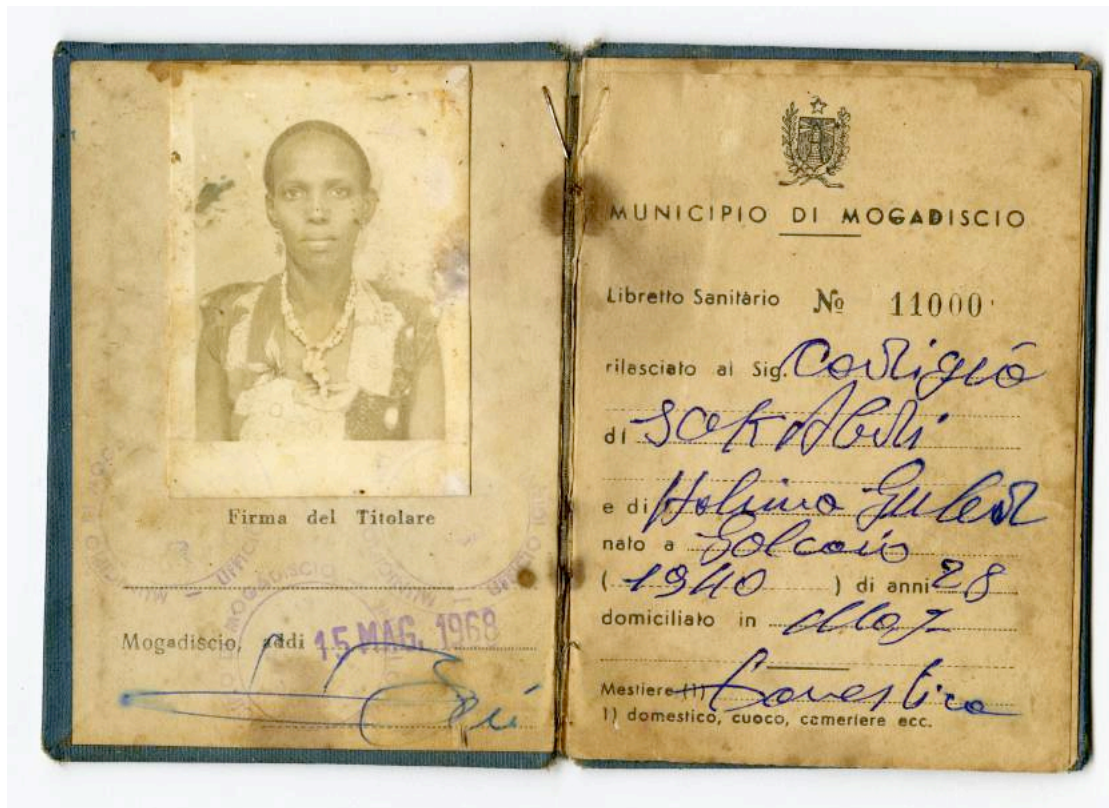 Firma del Titolare
Mogadiscio, addi 15 MAG. 1968
MUNICIPIO DI MOGADISCIO
Libretto Sanitario № 11000
rilasciato al Sig.
di
e di Halima Guled
nato a Galcaio
( 1940 ) di anni 28
domiciliato in Mog.
Mestiere (1) Domestica
1) domestico, cuoco, cameriere ecc.